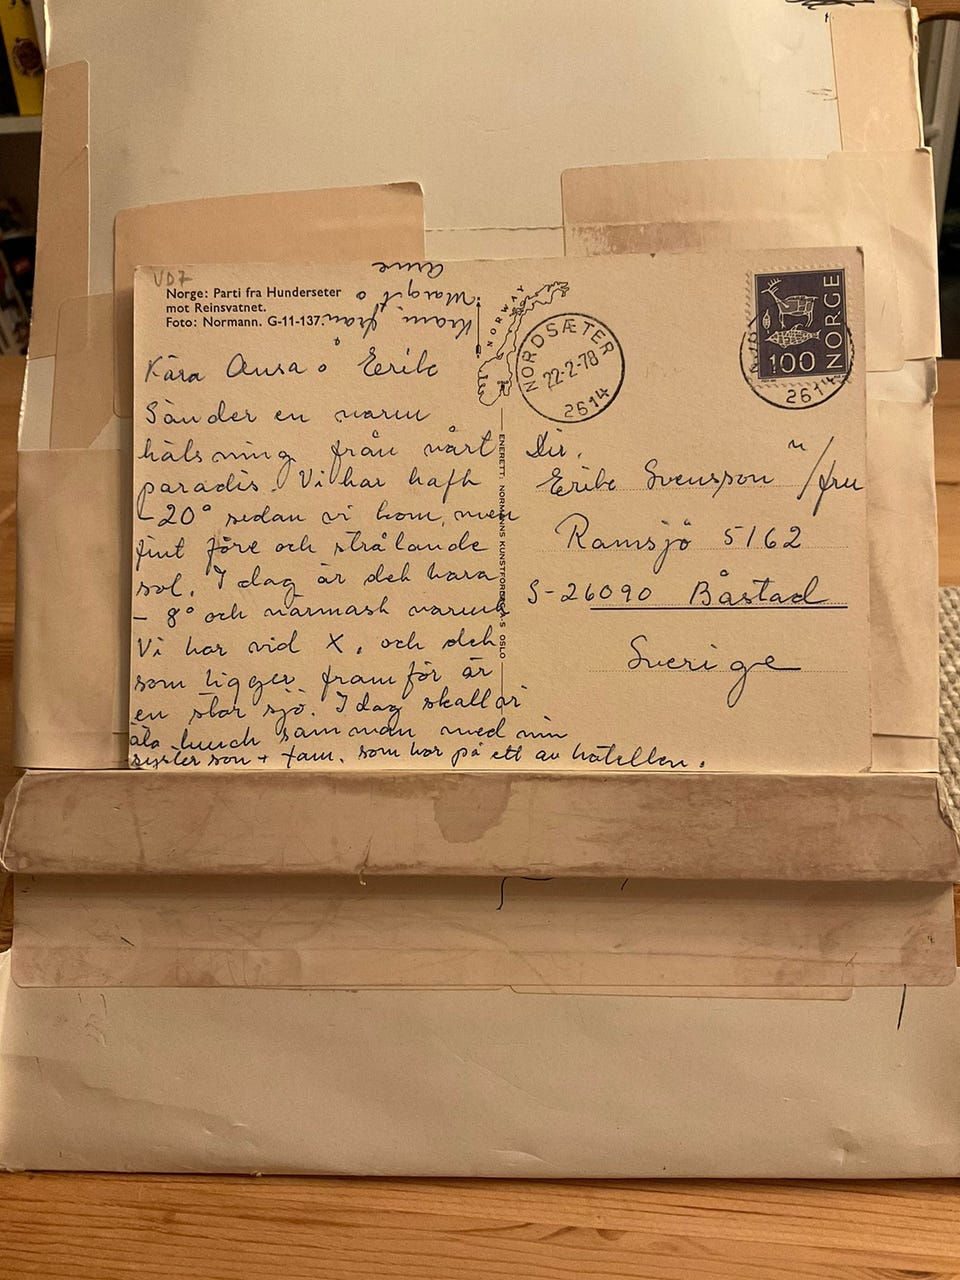 VD7
Norge: Parti fra Hunderseter
mot Reinsvatnet.
Foto: Normann. G-11-137.
Kram från
Margit o
Arne
NORWAY
NORDSÆTER
22-2-78
2614
100 NORGE
2614
Kära Ansa o Erik
Sänder en varm
hälsning från vårt
paradis. Vi har haft
-20° sedan vi kom, men
fint före och strålande
sol. I dag är det bara
- 8° och närmast varmt
Vi bor vid X, och det
som ligger framför är
en stor sjö. I dag skall vi
äta lunch samman med min
syster son + fam. som bor på ett av hotellen.
ENERETT: NORMANNS KUNSTFORLAG A.S OSLO
Dir.
Erik Svensson m/fru
Ramsjö 5162
S-26090 Båstad
Sverige